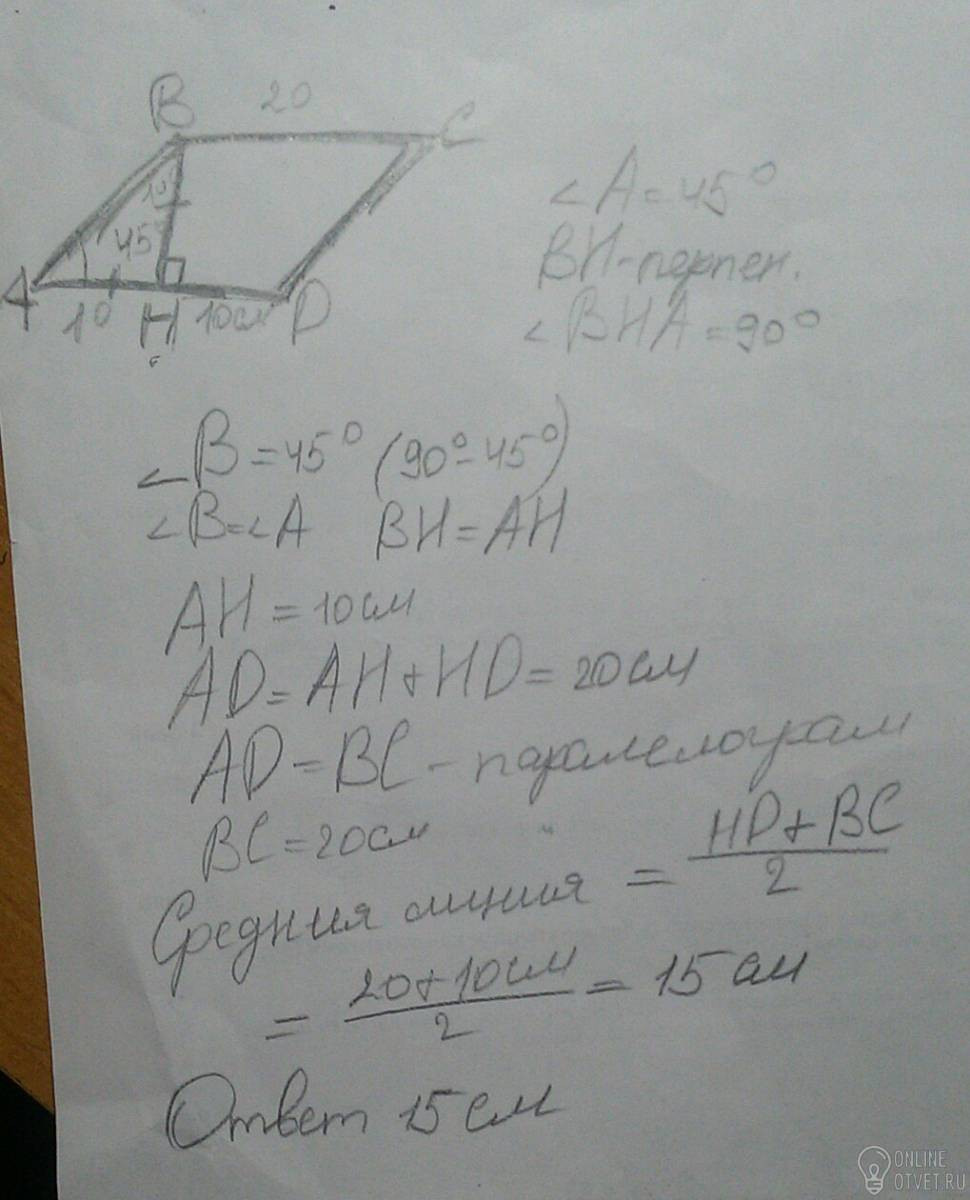 B 20 C
10
45°
A 10 H 10см D
∠A=45°
BH-перпен.
∠BHA=90°
∠B=45° (90°-45°)
∠B=∠A BH=AH
AH=10см
AD=AH+HD=20см
AD=BC-паралелограм
BC=20см
Средния линия = HD+BC / 2
= 20+10см / 2 = 15 см
Ответ 15см
ONLINE
OTVET.RU